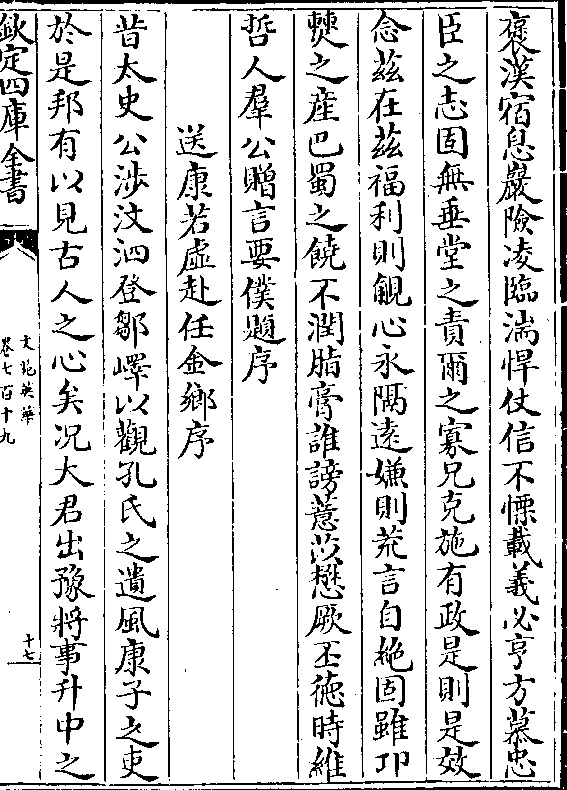 褒漢宿息巖險凌臨湍悍仗信不慄載義必亨方慕忠
臣之志固無垂堂之責爾之寡兄克施有政是則是效
念茲在茲福利則覦心永隔遠嫌則荒言自絶固雖卭
僰之産巴蜀之饒不潤脂膏誰謗薏苡懋厥丕徳時維
哲人羣公贈言要僕題序
送康若虚赴任金鄉序
昔太史公涉汶泗登鄒嶧以觀孔氏之遺風康子之吏
於是邦有以見古人之心矣况大君出豫將事升中之
欽定四庫全書
文苑英華
卷七百十九
十七